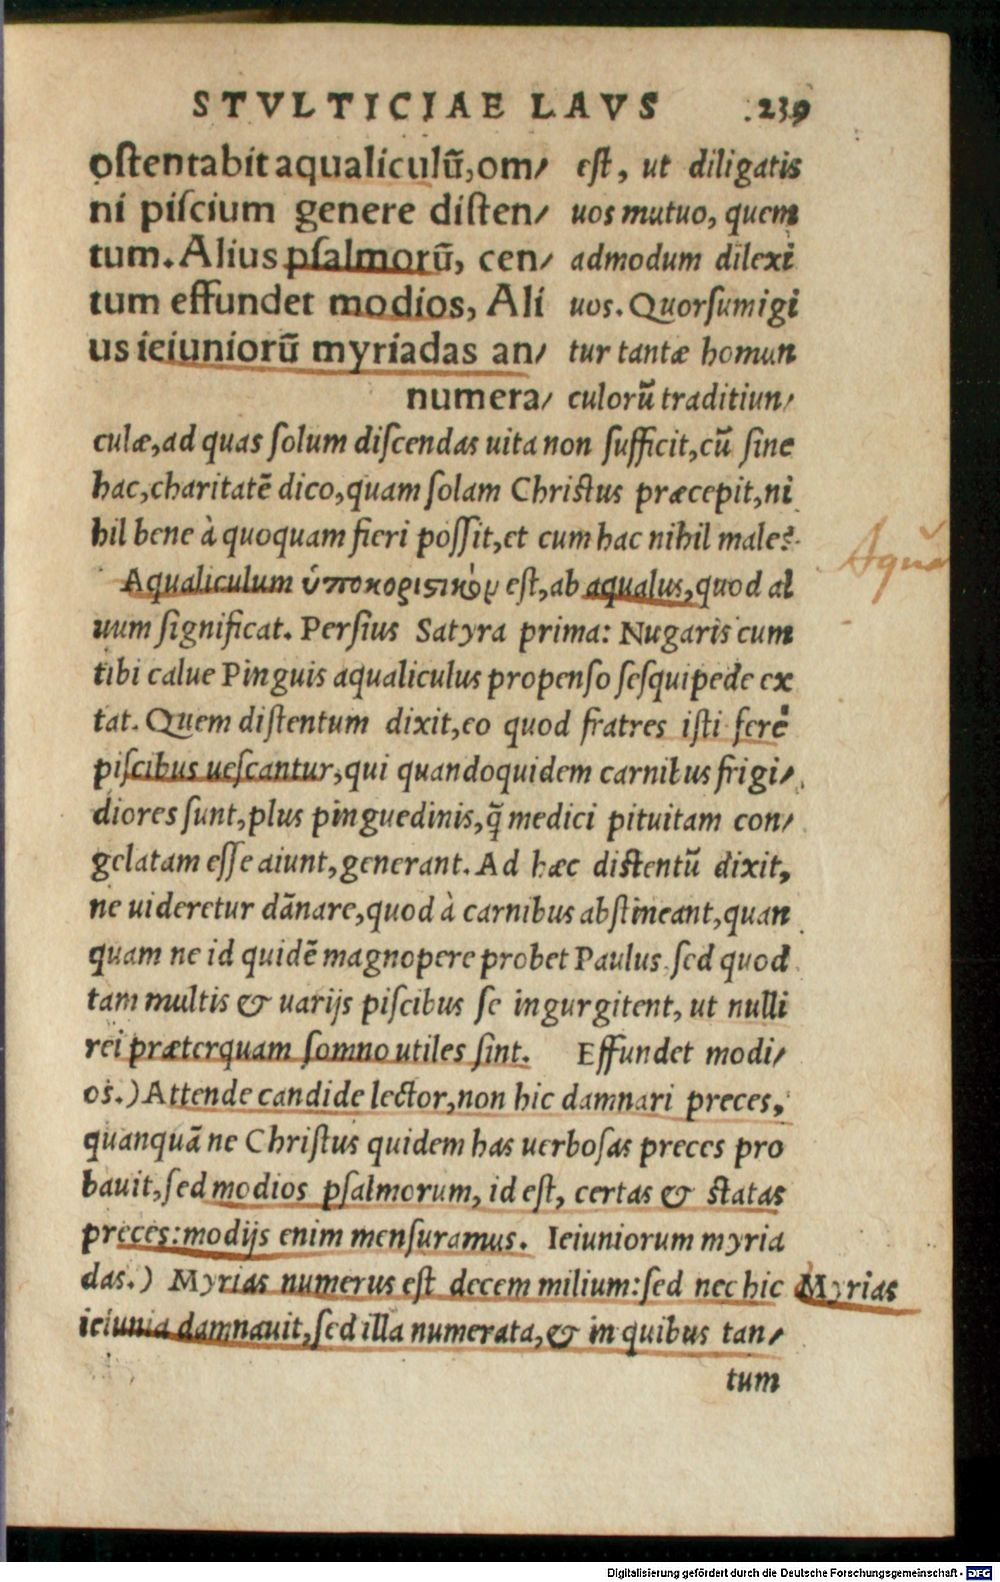 STVLTICIAE LAVS .239
ostentabit aqualiculū, om/
ni piscium genere disten/
tum. Alius psalmorū, cen/
tum effundet modios, Ali
us ieiuniorū myriadas an/
numera/
est, ut diligatis
uos mutuo, quem
admodum dilexi
uos. Quorsum igi
tur tantæ homun
culorū traditiun/
culæ, ad quas solum discendas uita non sufficit, cū sine
hac, charitatē dico, quam solam Christus præcepit, ni
hil bene à quoquam fieri possit, et cum hac nihil male?
Aqualiculum ὑποκοριστικὸν est, ab aqualus, quod al
uum significat. Persius Satyra prima: Nugaris cum
tibi calue Pinguis aqualiculus propenso sesquipede ex
tat. Quem distentum dixit, eo quod fratres isti ferè
piscibus uescantur, qui quandoquidem carnibus frigi/
diores sunt, plus pinguedinis, q̃ medici pituitam con/
gelatam esse aiunt, generant. Ad hæc distentū dixit,
ne uideretur dānare, quod à carnibus abstineant, quan
quam ne id quidē magnopere probet Paulus, sed quod
tam multis & uarijs piscibus se ingurgitent, ut nulli
rei præterquam somno utiles sint. Effundet modi/
os.) Attende candide lector, non hic damnari preces,
quanquā ne Christus quidem has uerbosas preces pro
bauit, sed modios psalmorum, id est, certas & statas
preces: modijs enim mensuramus. Ieiuniorum myria
das.) Myrias numerus est decem milium: sed nec hic
ieiunia damnauit, sed illa numerata, & in quibus tan/
tum
Aqua
Myrias
Digitalisierung gefördert durch die Deutsche Forschungsgemeinschaft - DFG